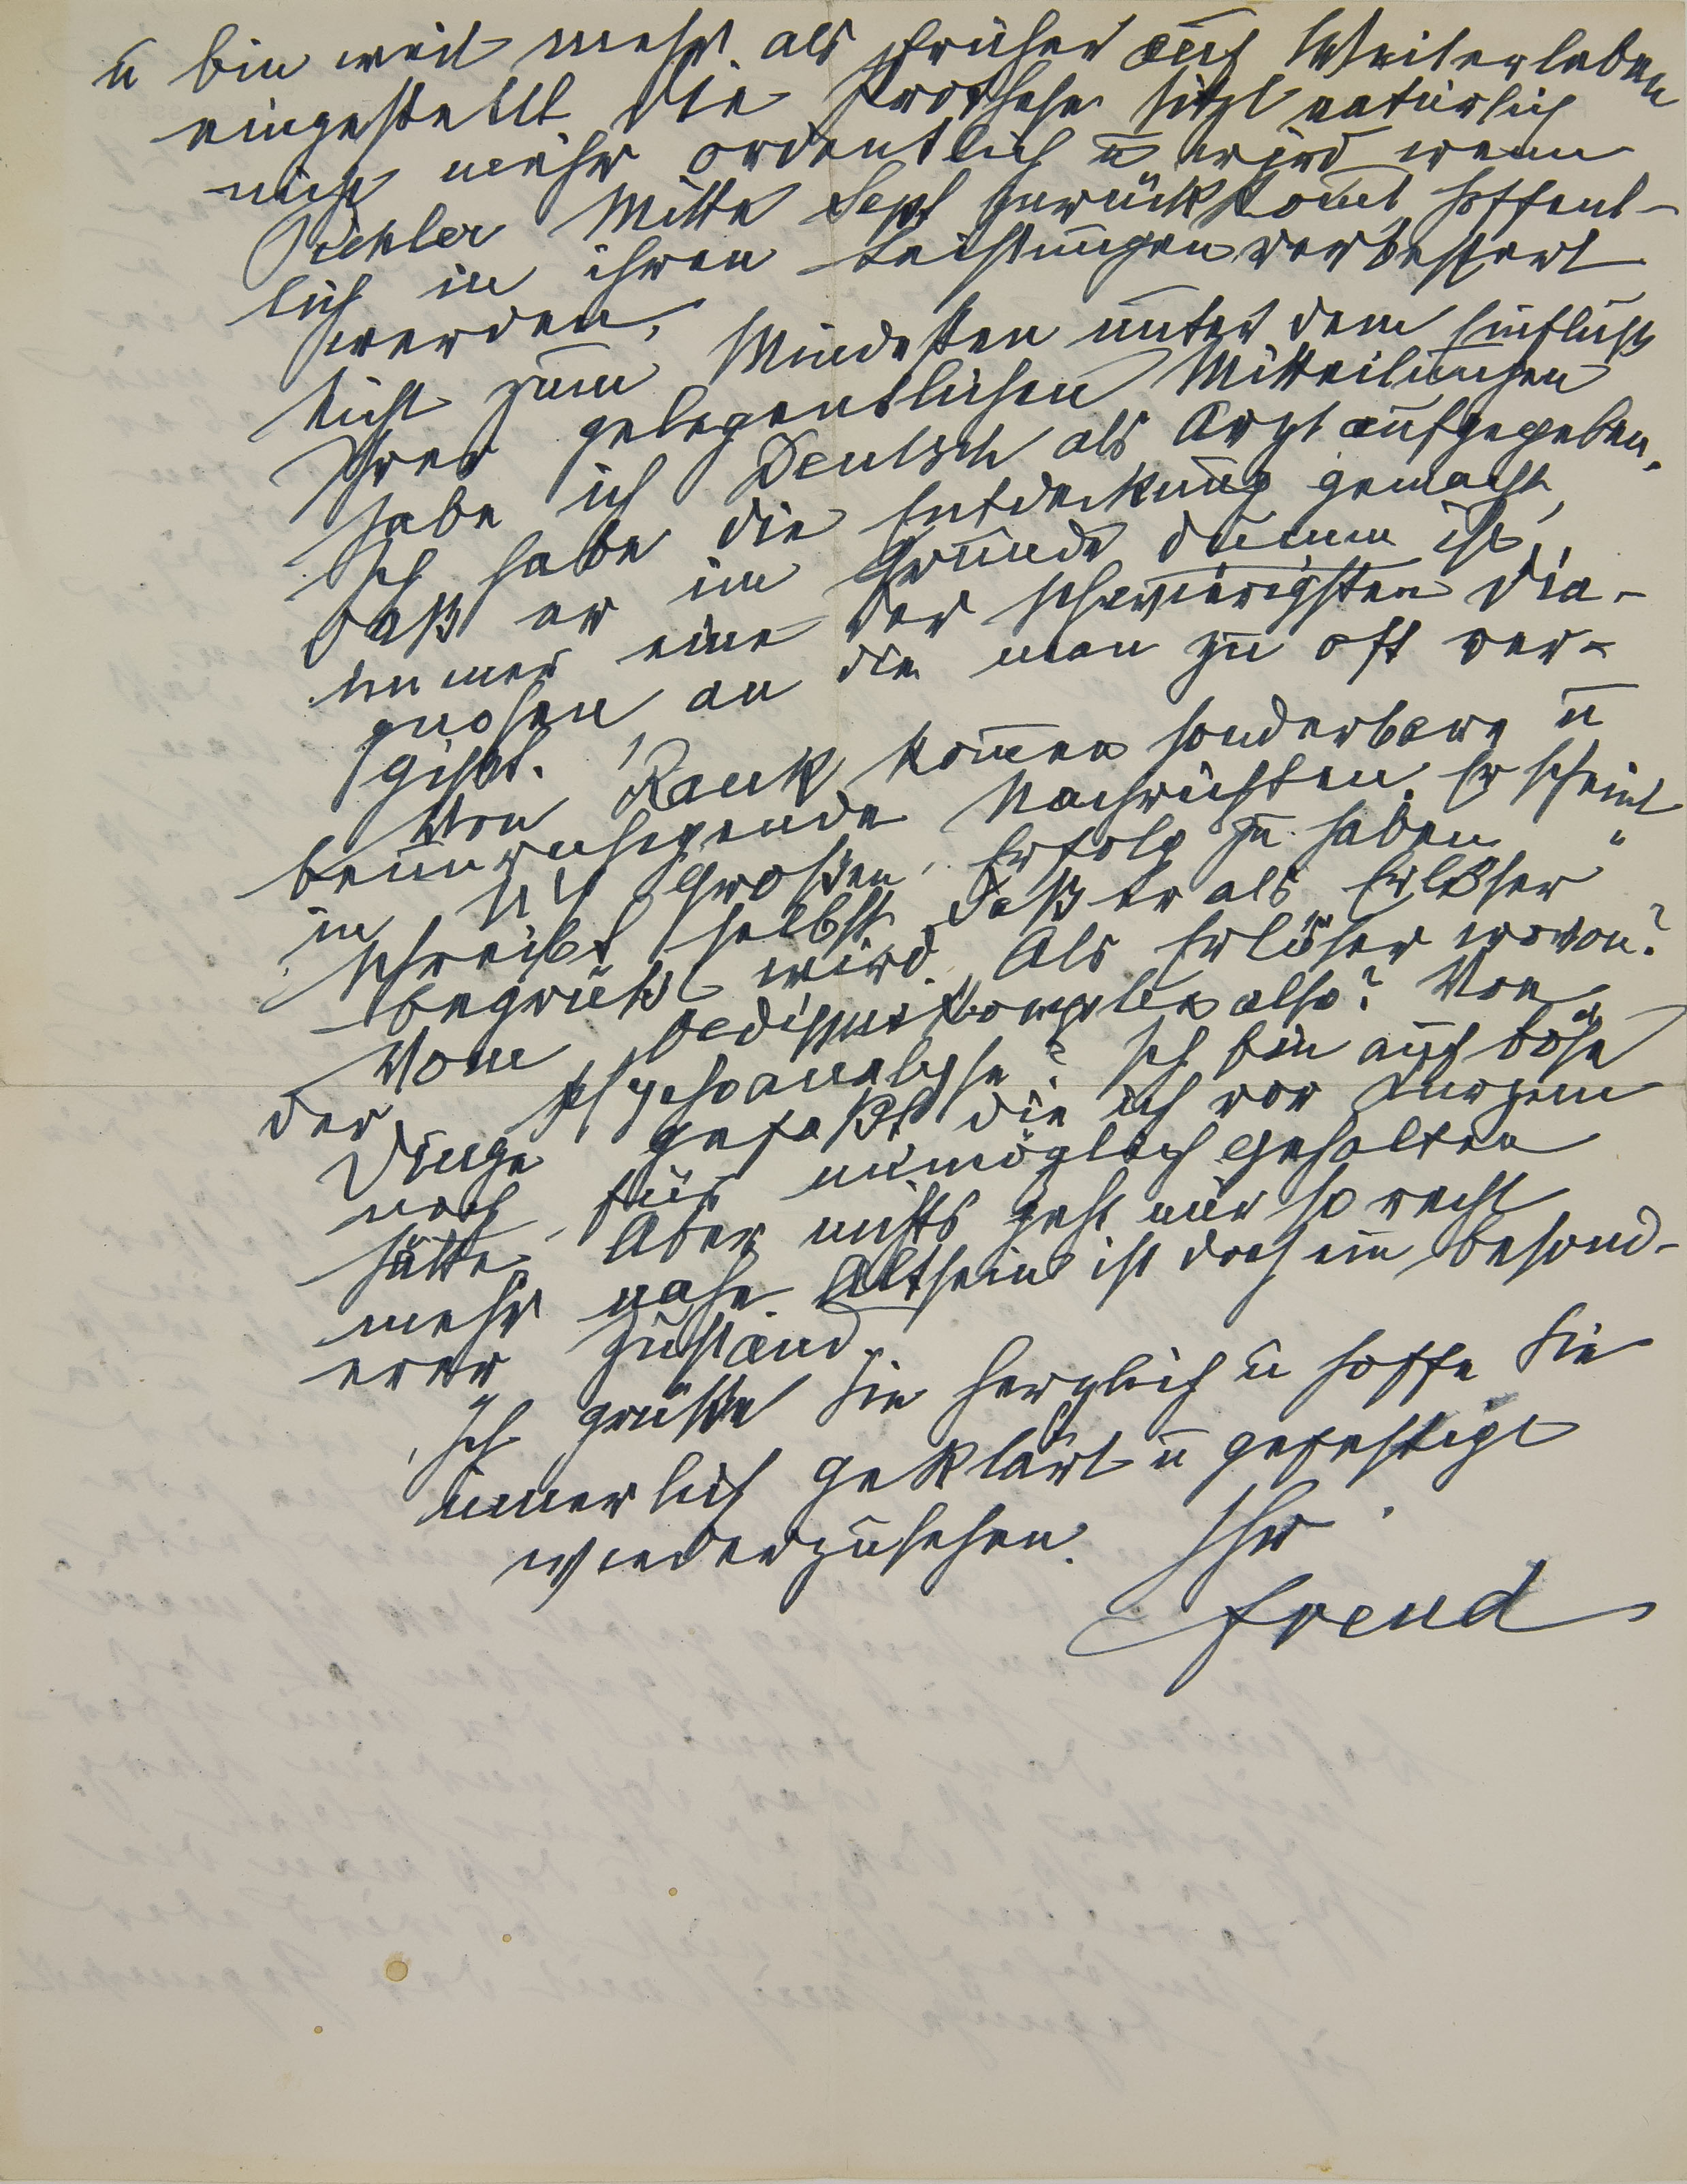 u bin weit mehr als früher auf Weiterleben
eingestellt. Die Prothese sitzt natürlich
nicht mehr ordentlich u wird wenn
Pichler Mitte Sept zurückkomt hoffent-
lich in ihren Leistungen verbessert
werden.
Nicht zum Mindesten unter dem Einfluß
Ihrer gelegentlichen Mitteilungen
habe ich Deutsch als Arzt aufgegeben.
Ich habe die Entdeckung gemacht,
daß er im Grunde dumm ist,
immer eine der schwierigsten Dia-
gnosen, an die man zu oft ver-
gißt.
Von Rank komen sonderbare u
beunruhigende Nachrichten. Er scheint
in NY großen Erfolg zu haben
schreibt selbst, daß er als Erlöser"
begrüßt wird. Als Erlöser wovon?
Vom Oedipuskomplex also? Von
der Psychoanalyse? Ich bin auf böse
Dinge gefaßt, die ich vor Kurzem
noch für unmöglich gehalten
hätte. Aber nichts geht mir so recht
mehr nahe. Altsein ist doch ein besond-
erer Zustand.
Ich grüße Sie herzlich u hoffe Sie
innerlich geklärt u gefestigt
wiederzusehen. Ihr
Freud